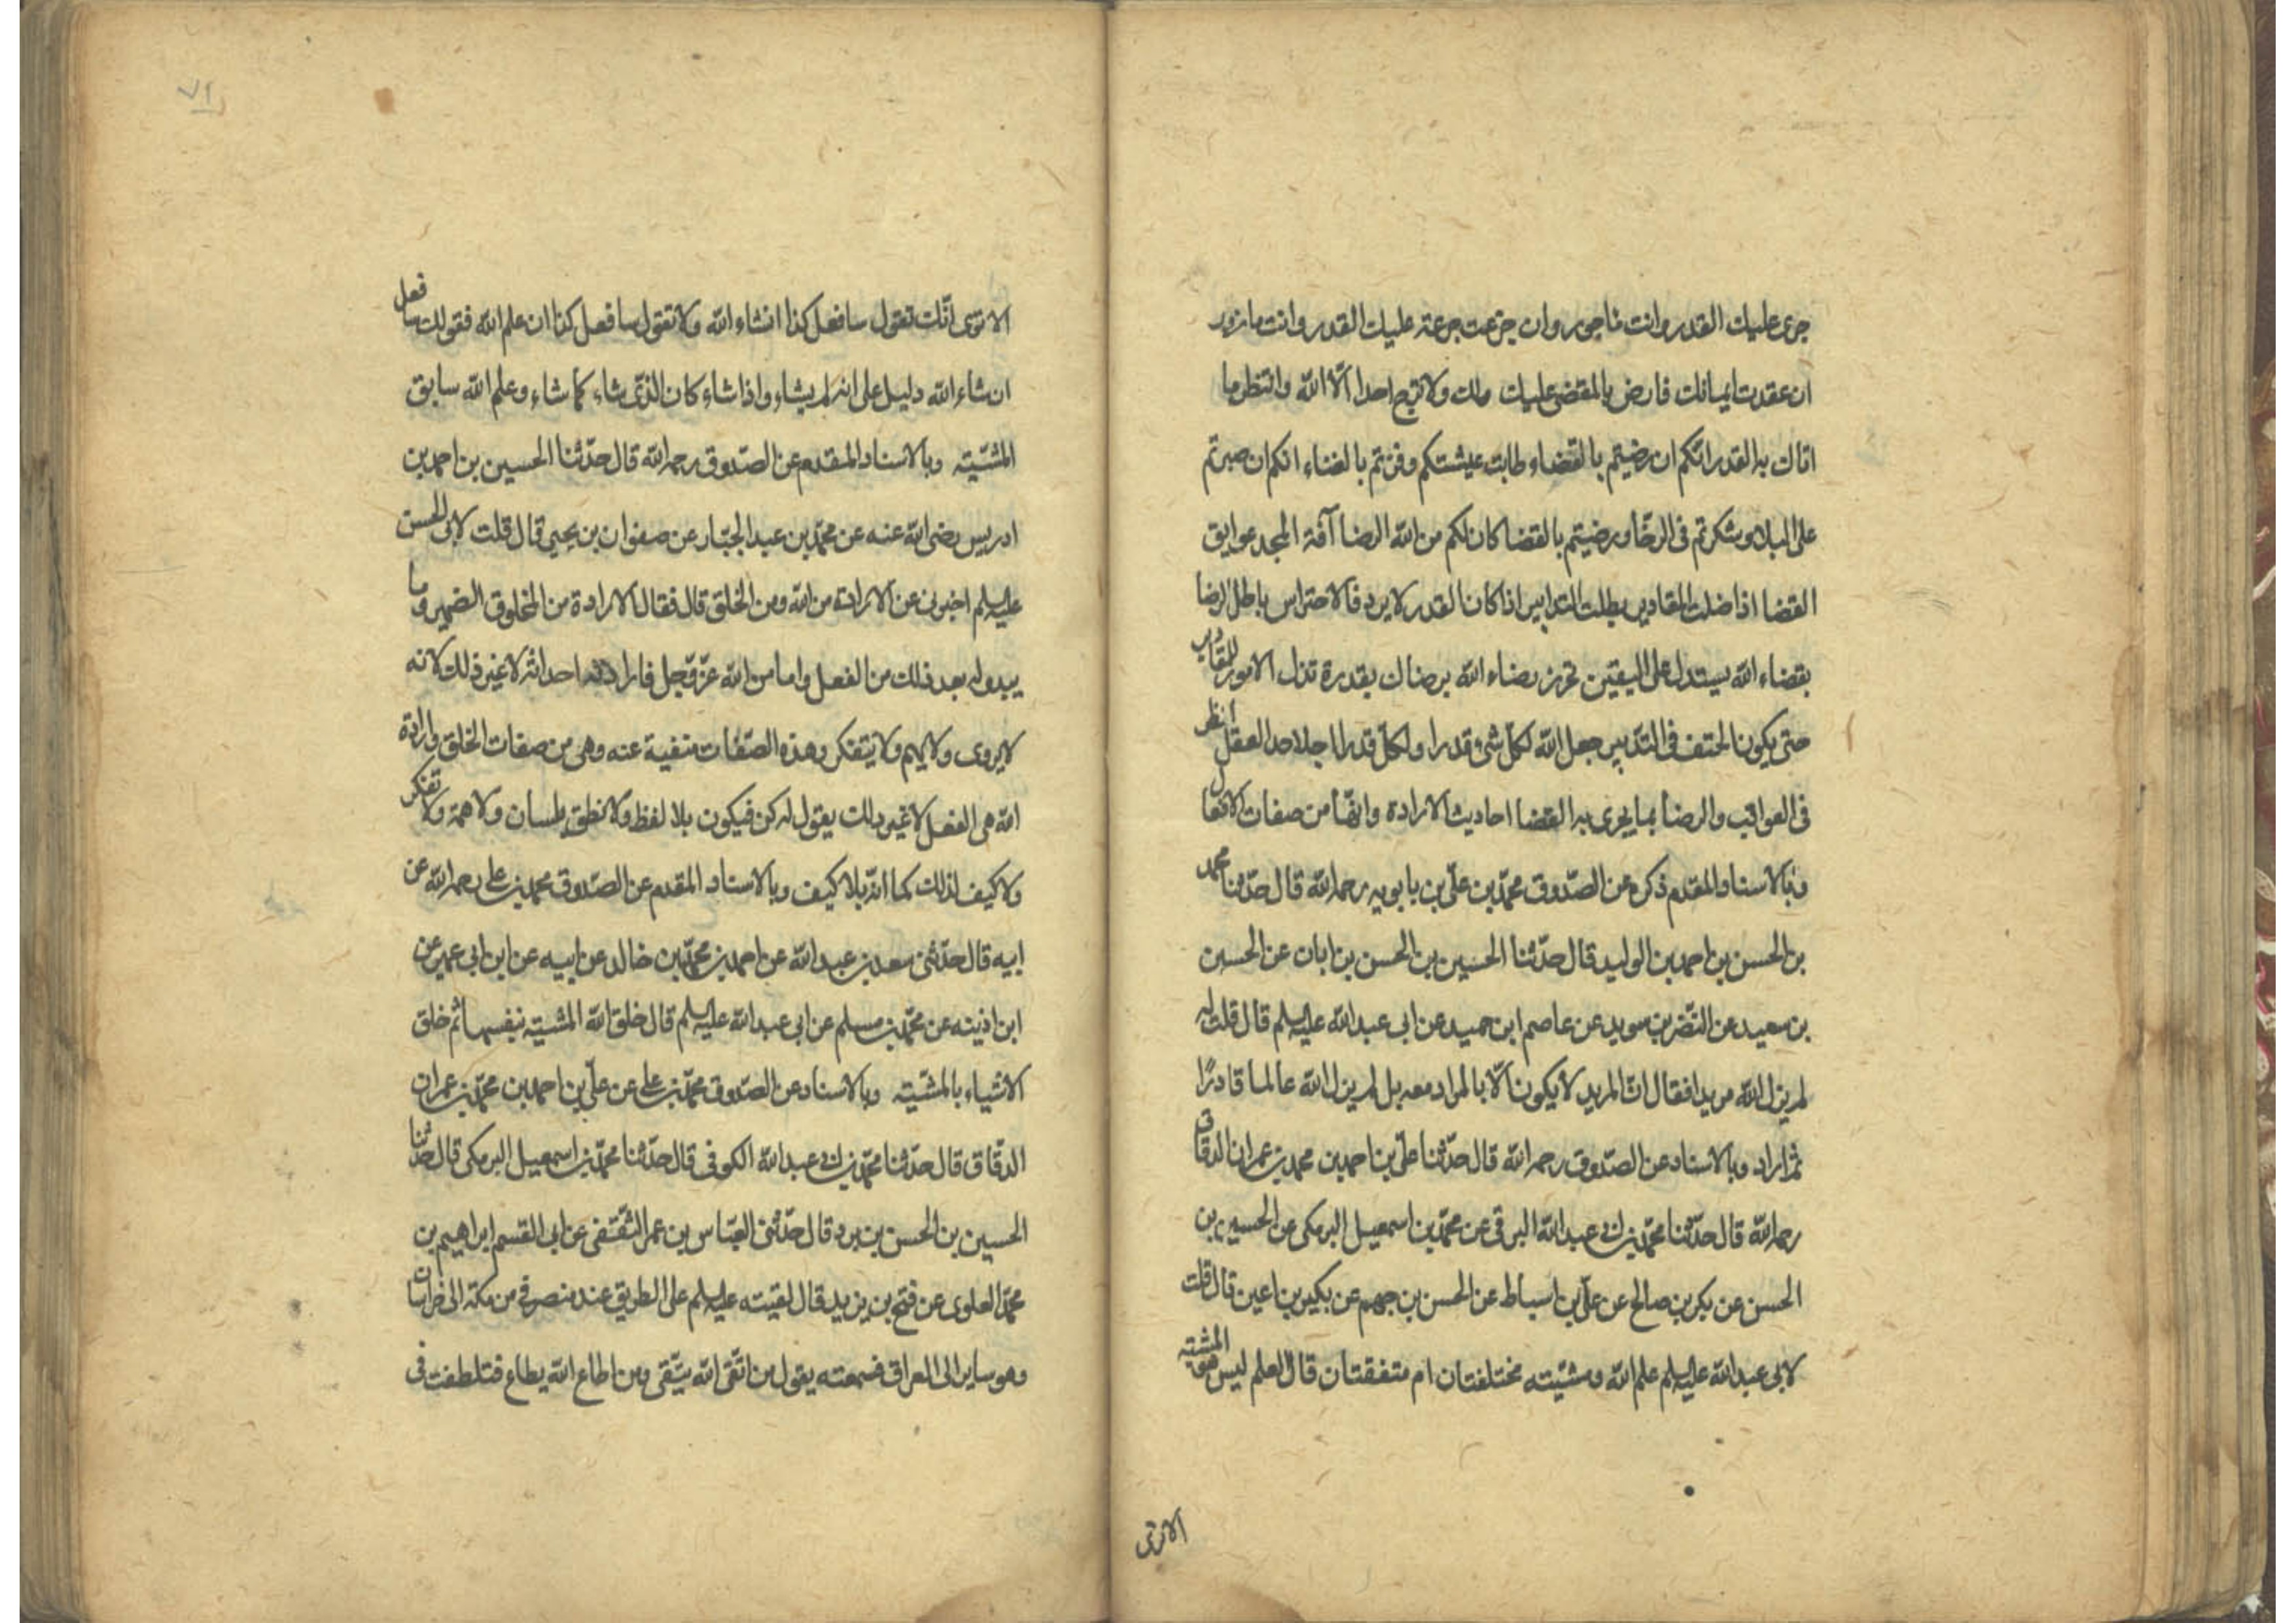 جرى عليك القدر وانت ماجور وان جزعت جرعته عليك القدر وانت مازور
ان عقدت ايمانك فارض بالمقضى عليك ولك ولا ترج احدا الّا الله وانتظر ما
اتاك به القدر انكم ان رضيتم بالقضاء طابت عيشتكم وفزتم بالغناء انكم ان صبرتم
على البلاء وشكرتم فى الرخّا ورضيتم بالقضا كان لكم من الله الرضا آفة المجد عوايق
القضا اذا ضلت المقادير بطلت التدابير اذا كان القدر لا يرد فالاحتراس باطل الرضا
بقضاء الله يستدل على اليقين تحرز رضاء الله برضاك بقدره تذل الامور للمقادير
حتى يكون الحتف فى التدبير جعل الله لكلّ شئ قدرا ولكلّ قدر اجلا حد العقل النظر
فى العواقب والرضا بما يجرى به القضا احاديث الارادة وانّها من صفات الافعال
وبالاسناد المقدم ذكره عن الصدوق محمّد بن علىّ بن بابويه رحمه الله قال حدثنا محمد
بن الحسن بن احمد بن الوليد قال حدّثنا الحسين بن الحسن بن ابان عن الحسين
بن سعيد عن النّضر بن سويد عن عاصم ابن حميد عن ابى عبد الله عليه السلم قال قلت له
لم يزل الله مريدا فقال انّ المريد لا يكون الّا بالمراد معه بل لم يزل الله عالما قادرًا
ثم اراد وبالاسناد عن الصدوق رحمه الله قال حدّثنا علىّ بن احمد بن محمد بن عمران الدقاق
رحمه الله قال حدّثنا محمّد بن ابى عبد الله البرقى عن محمّد بن اسمعيل البرمكى عن الحسين بن
الحسن عن بكر بن صالح عن علىّ بن اسباط عن الحسن بن جهم عن بكير بن اعين قال قلت
لابى عبد الله عليه السلم علم الله ومشيّته مختلفتان ام متفقتان قال العلم ليس هو المشيّته
الا ترى
٧١
الا ترى انّك تقول سافعل كذا انشاء الله ولا تقول سافعل كذا ان علم الله فقولك سافعل
ان شاء الله دليل على انه لم يشاء واذا شاء كان الّذى شاء كما شاء وعلم الله سابق
المشيّته وبالاسناد المتقدم عن الصدوق رحمه الله قال حدّثنا الحسين بن احمد بن
ادريس رضى الله عنه عن محمّد بن عبد الجبّار عن صفوان بن يحيى قال قلت لابى الحسن
عليه السلم اخبرنى عن الارادة من الله ومن الخلق قال فقال الارادة من المخلوق الضمير وما
يبدو له بعد ذلك من الفعل واما من الله عزّ وجل فارادته احداثه لا غير ذلك لانه
لا يروى ولا يهم ولا يتفكر وهذه الصّفات منفية عنه وهى من صفات الخلق وارادة
الله هى الفعل لا غير ذلك يقول له كن فيكون بلا لفظ ولا نطق بلسان ولا همة ولا تفكر
ولا كيف لذلك كما انّه بلا كيف وبالاسناد المقدم عن الصدوق محمد بن على رحمه الله عن
ابيه قال حدّثنى سعد بن عبد الله عن احمد بن محمّد بن خالد عن ابيه عن ابن ابى عمير عن
ابن اذينه عن محمّد بن مسلم عن ابى عبد الله عليه السلم قال خلق الله المشيته بنفسها ثم خلق
الاشياء بالمشيّته وبالاسناد عن الصدوق محمّد بن على عن علىّ بن احمد بن محمّد بن عمران
الدقاق قال حدّثنا محمّد بن ابى عبد الله الكوفى قال حدّثنا محمّد بن اسمعيل البرمكى قال حدّثنا
الحسين بن الحسن بن برد قال حدّثنى العبّاس بن عمر الثقفى عن ابى القسم ابراهيم بن
محمّد العلوى عن فتح بن يزيد قال لقيته عليه السلم على الطريق عند منصرفى من مكة الى خراسان
وهو ساير الى العراق فسمعته يقول من اتّقى الله يتّقى ومن اطاع الله يطاع فتلطفت فى